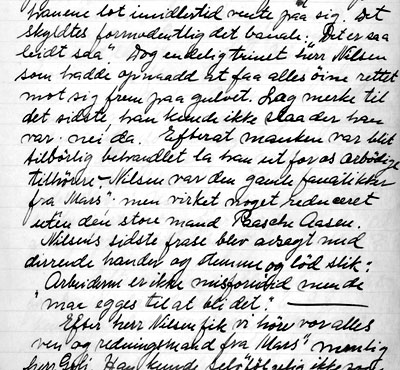 hanene lot imidlertid vente paa sig. Det
skyldtes formodentlig det banale: "Det er saa
leidt saa". Dog endelig trinet herr Nilsen
som hadde opnaadd at faa alles öine rettet
mot sig frem paa gulvet. Læg merke til
det sidste han kunde ikke staa der han
var. nei da. Efterat manken var blit
tilbörlig behandlet la han ut for os arbeidige
tilhörere – Nilsen var den gamle fanatikker
fra Mars" men virket noget reduceret
uten den store mand Paasche Aasen.
Nilsens sidste frase blev avlagt med
dirrende hænder og stemme og löd slik:
"Arbeiderne er ikke misfornöid men de
"maa egges til at bli det."
Efter herr Nilsen fik vi höre vor alles
ven og redningsmand fra Mars" nemlig
herr Han kunde selvfölgelig ikke